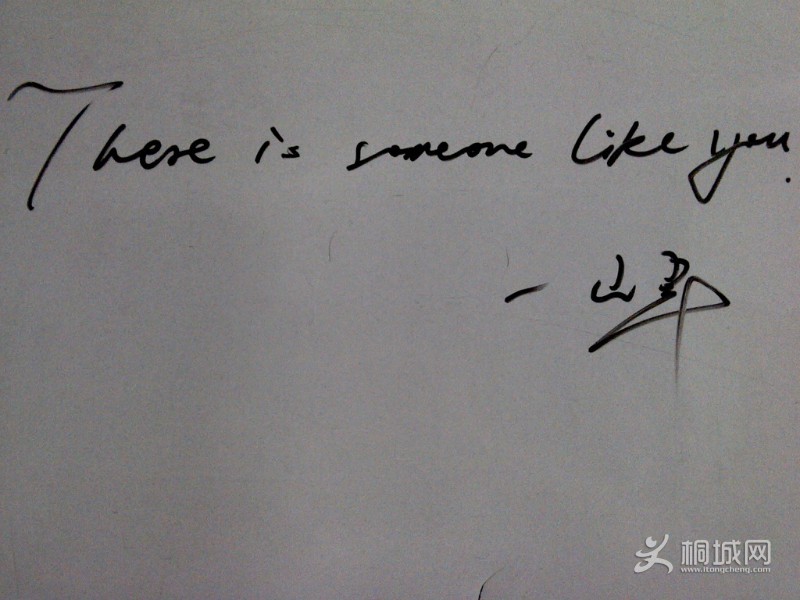 There is someone like you.
桐城网
www.itongcheng.com